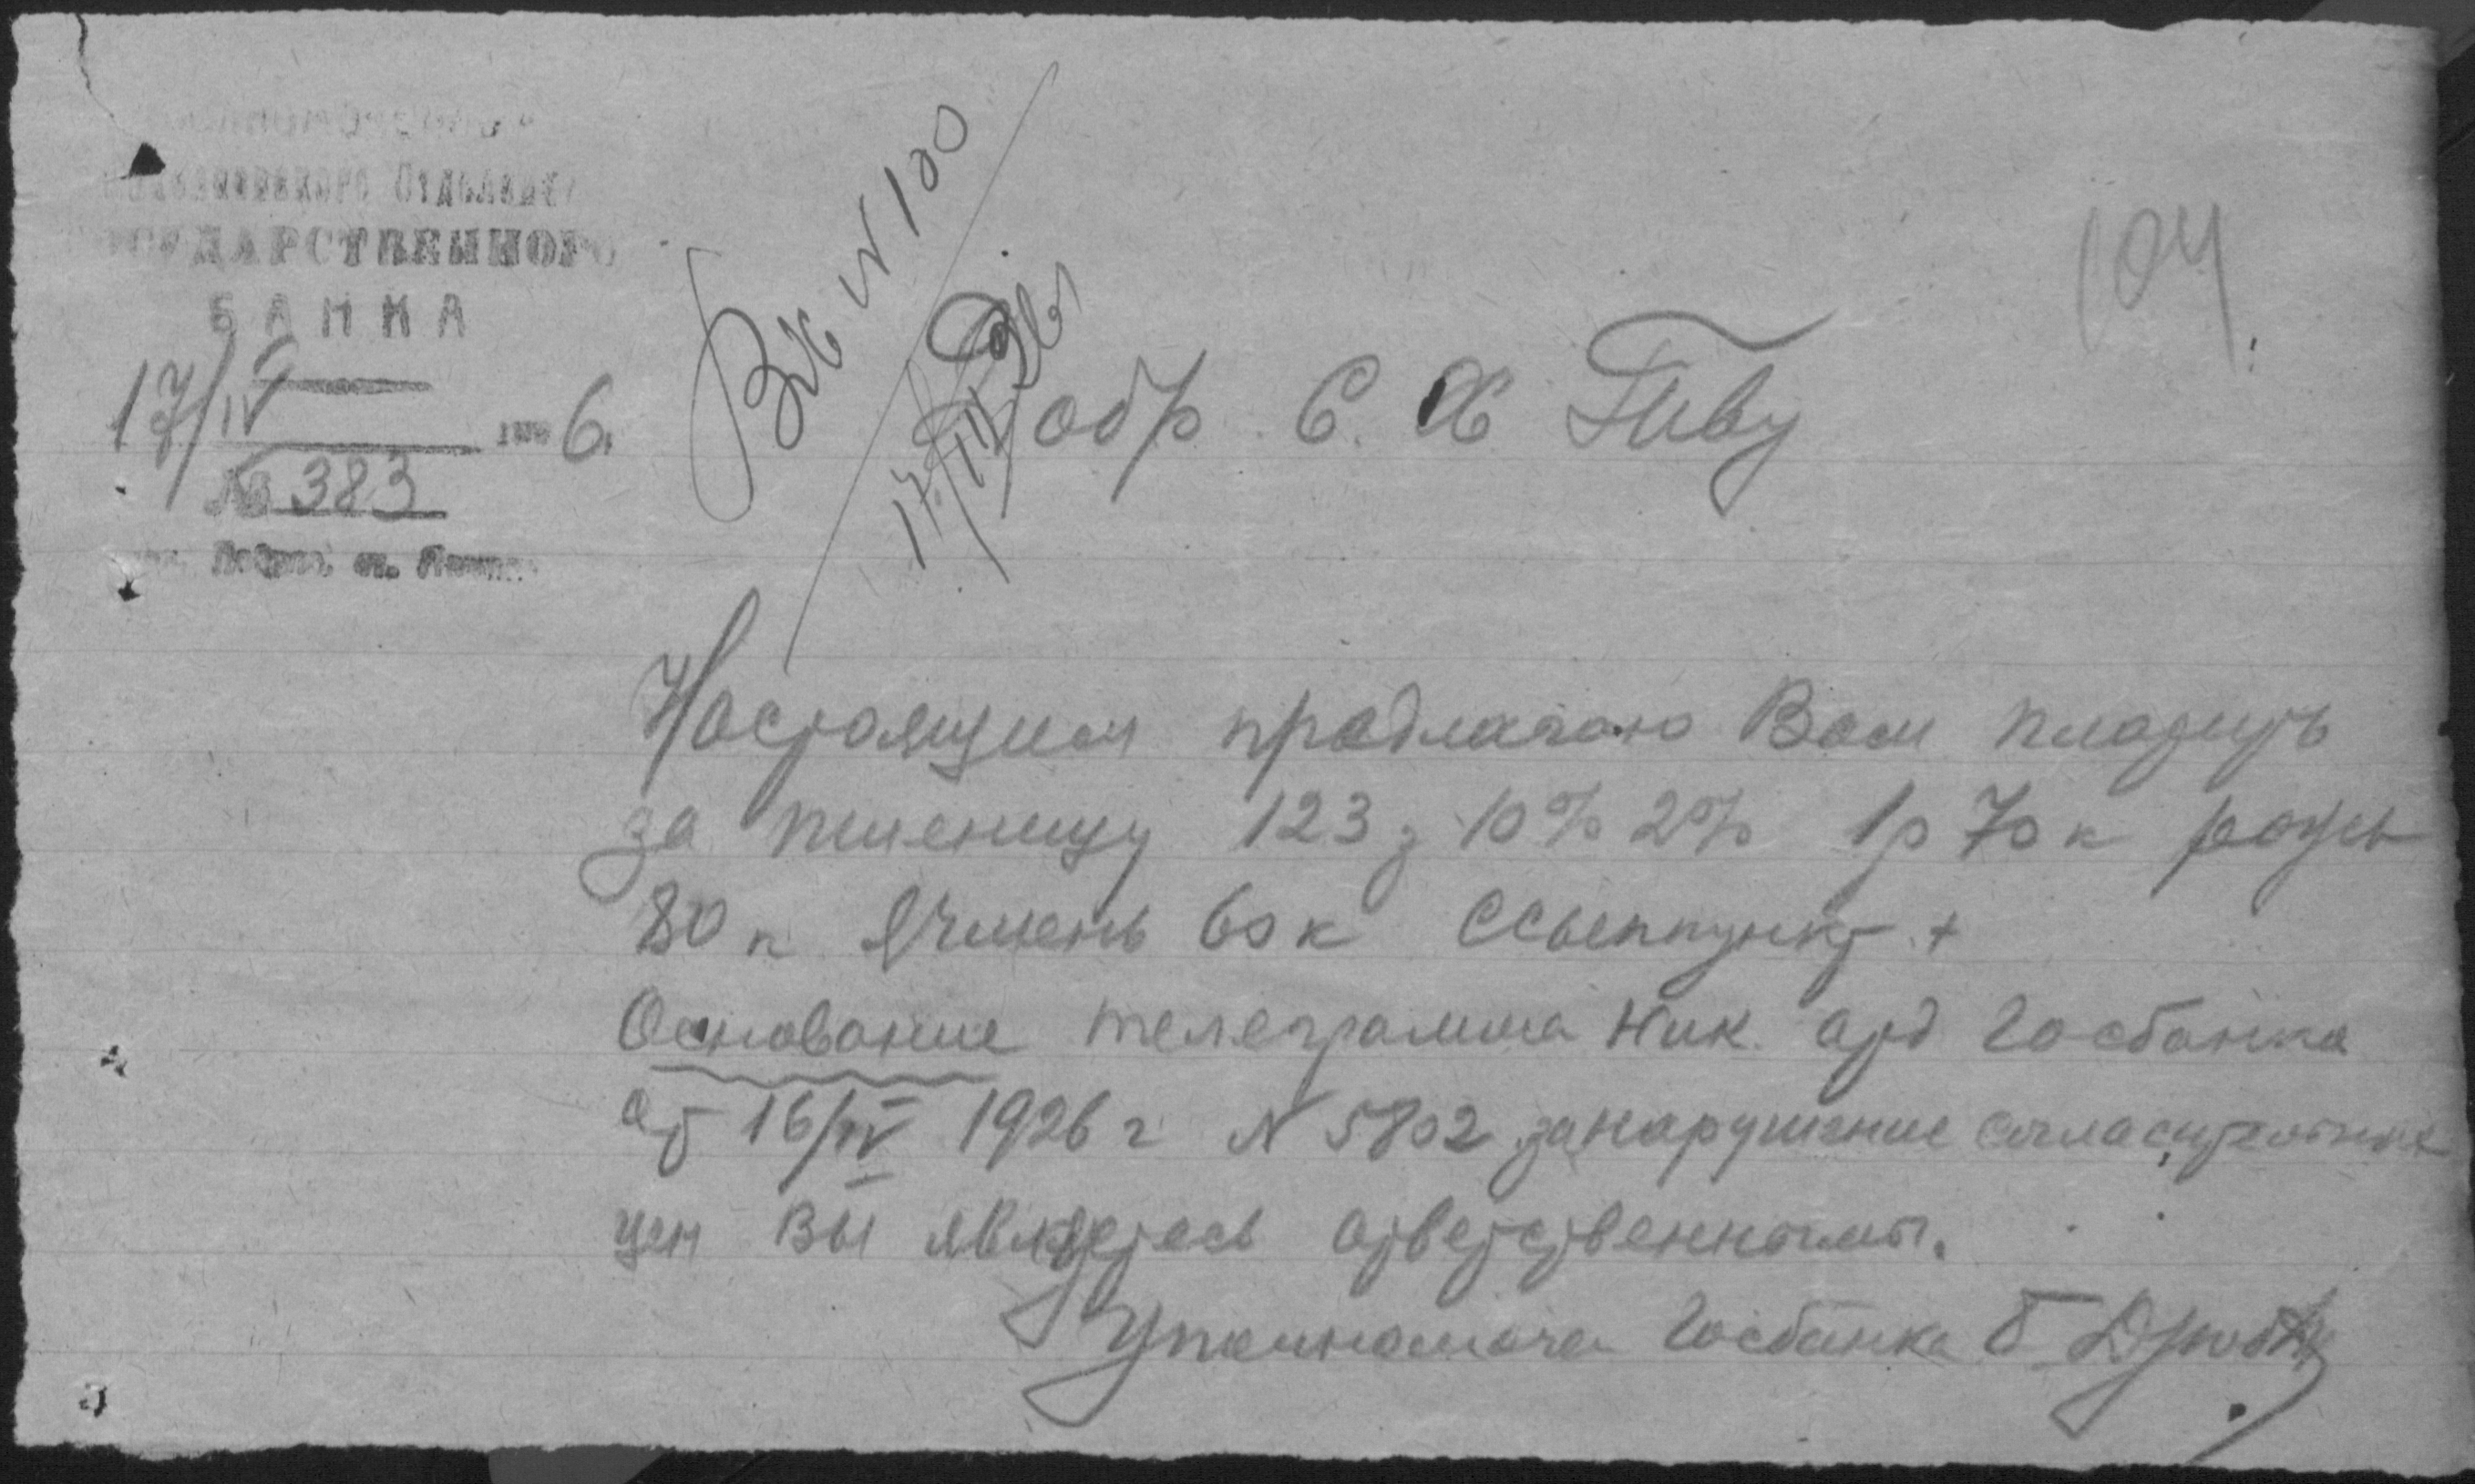 Отделения
ГОСУДАРСТВЕННОГО
БАНКА
17/IV 1926.
№ 383
Вх N 100
17/IV 26
104
Добр С. Х Т-ву
Настоящим предлагаю Вам платить
за пшеницу 123 з 10% 2% 1р 70к рожь
80 к Ячмень 60 к Ссыппункт +
Основание телеграмма Ник. отд Госбанка
от 16/IV 1926 г N 5802 за нарушение согласительных
цен Вы являетесь ответственными.
Уполномоч Госбанка